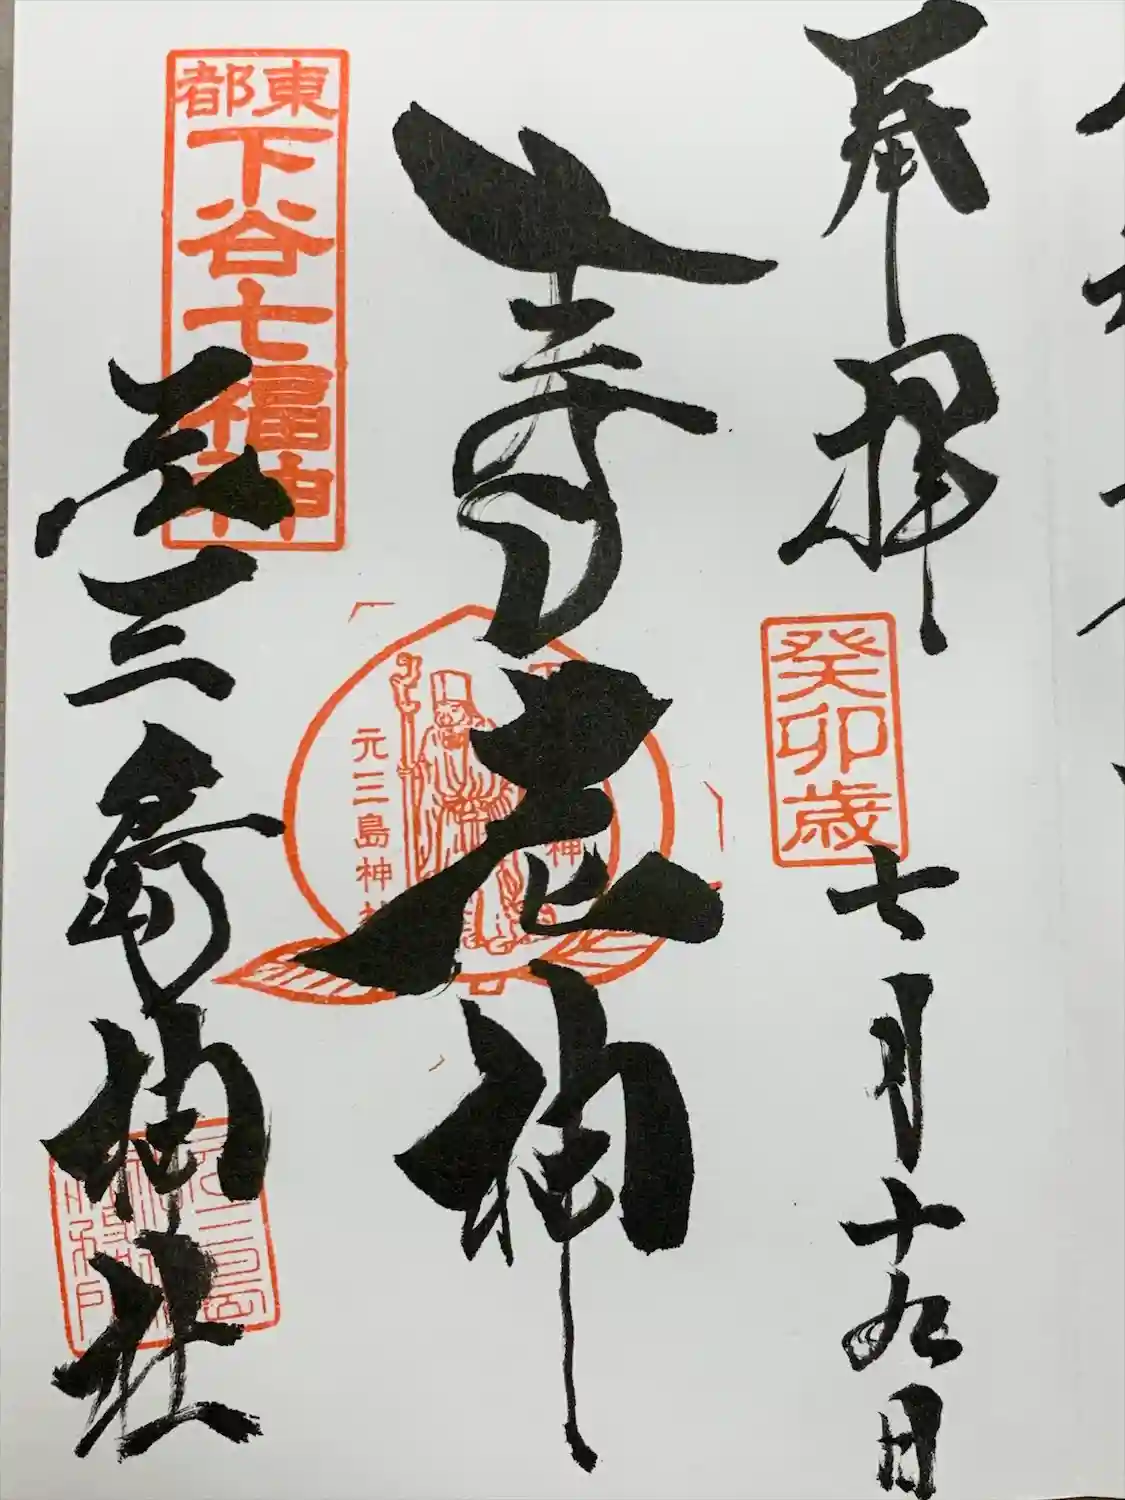 奉拝
癸卯歳
七月十九日
寿老神
元三島神社
神
東都
下谷七福神
元三島神社